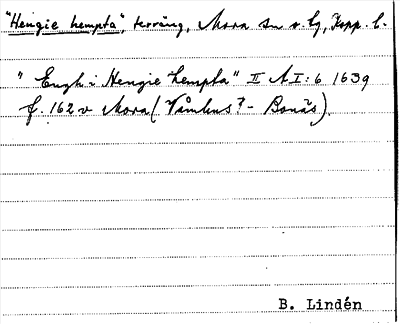 "Hengie hempta", terräng, Mora sn o. lg, Kopp. l.
"Engh i Hengie hempta" II A I:6 1639
f. 162 v Mora (Våmhus? - Bonäs).
B. Lindén